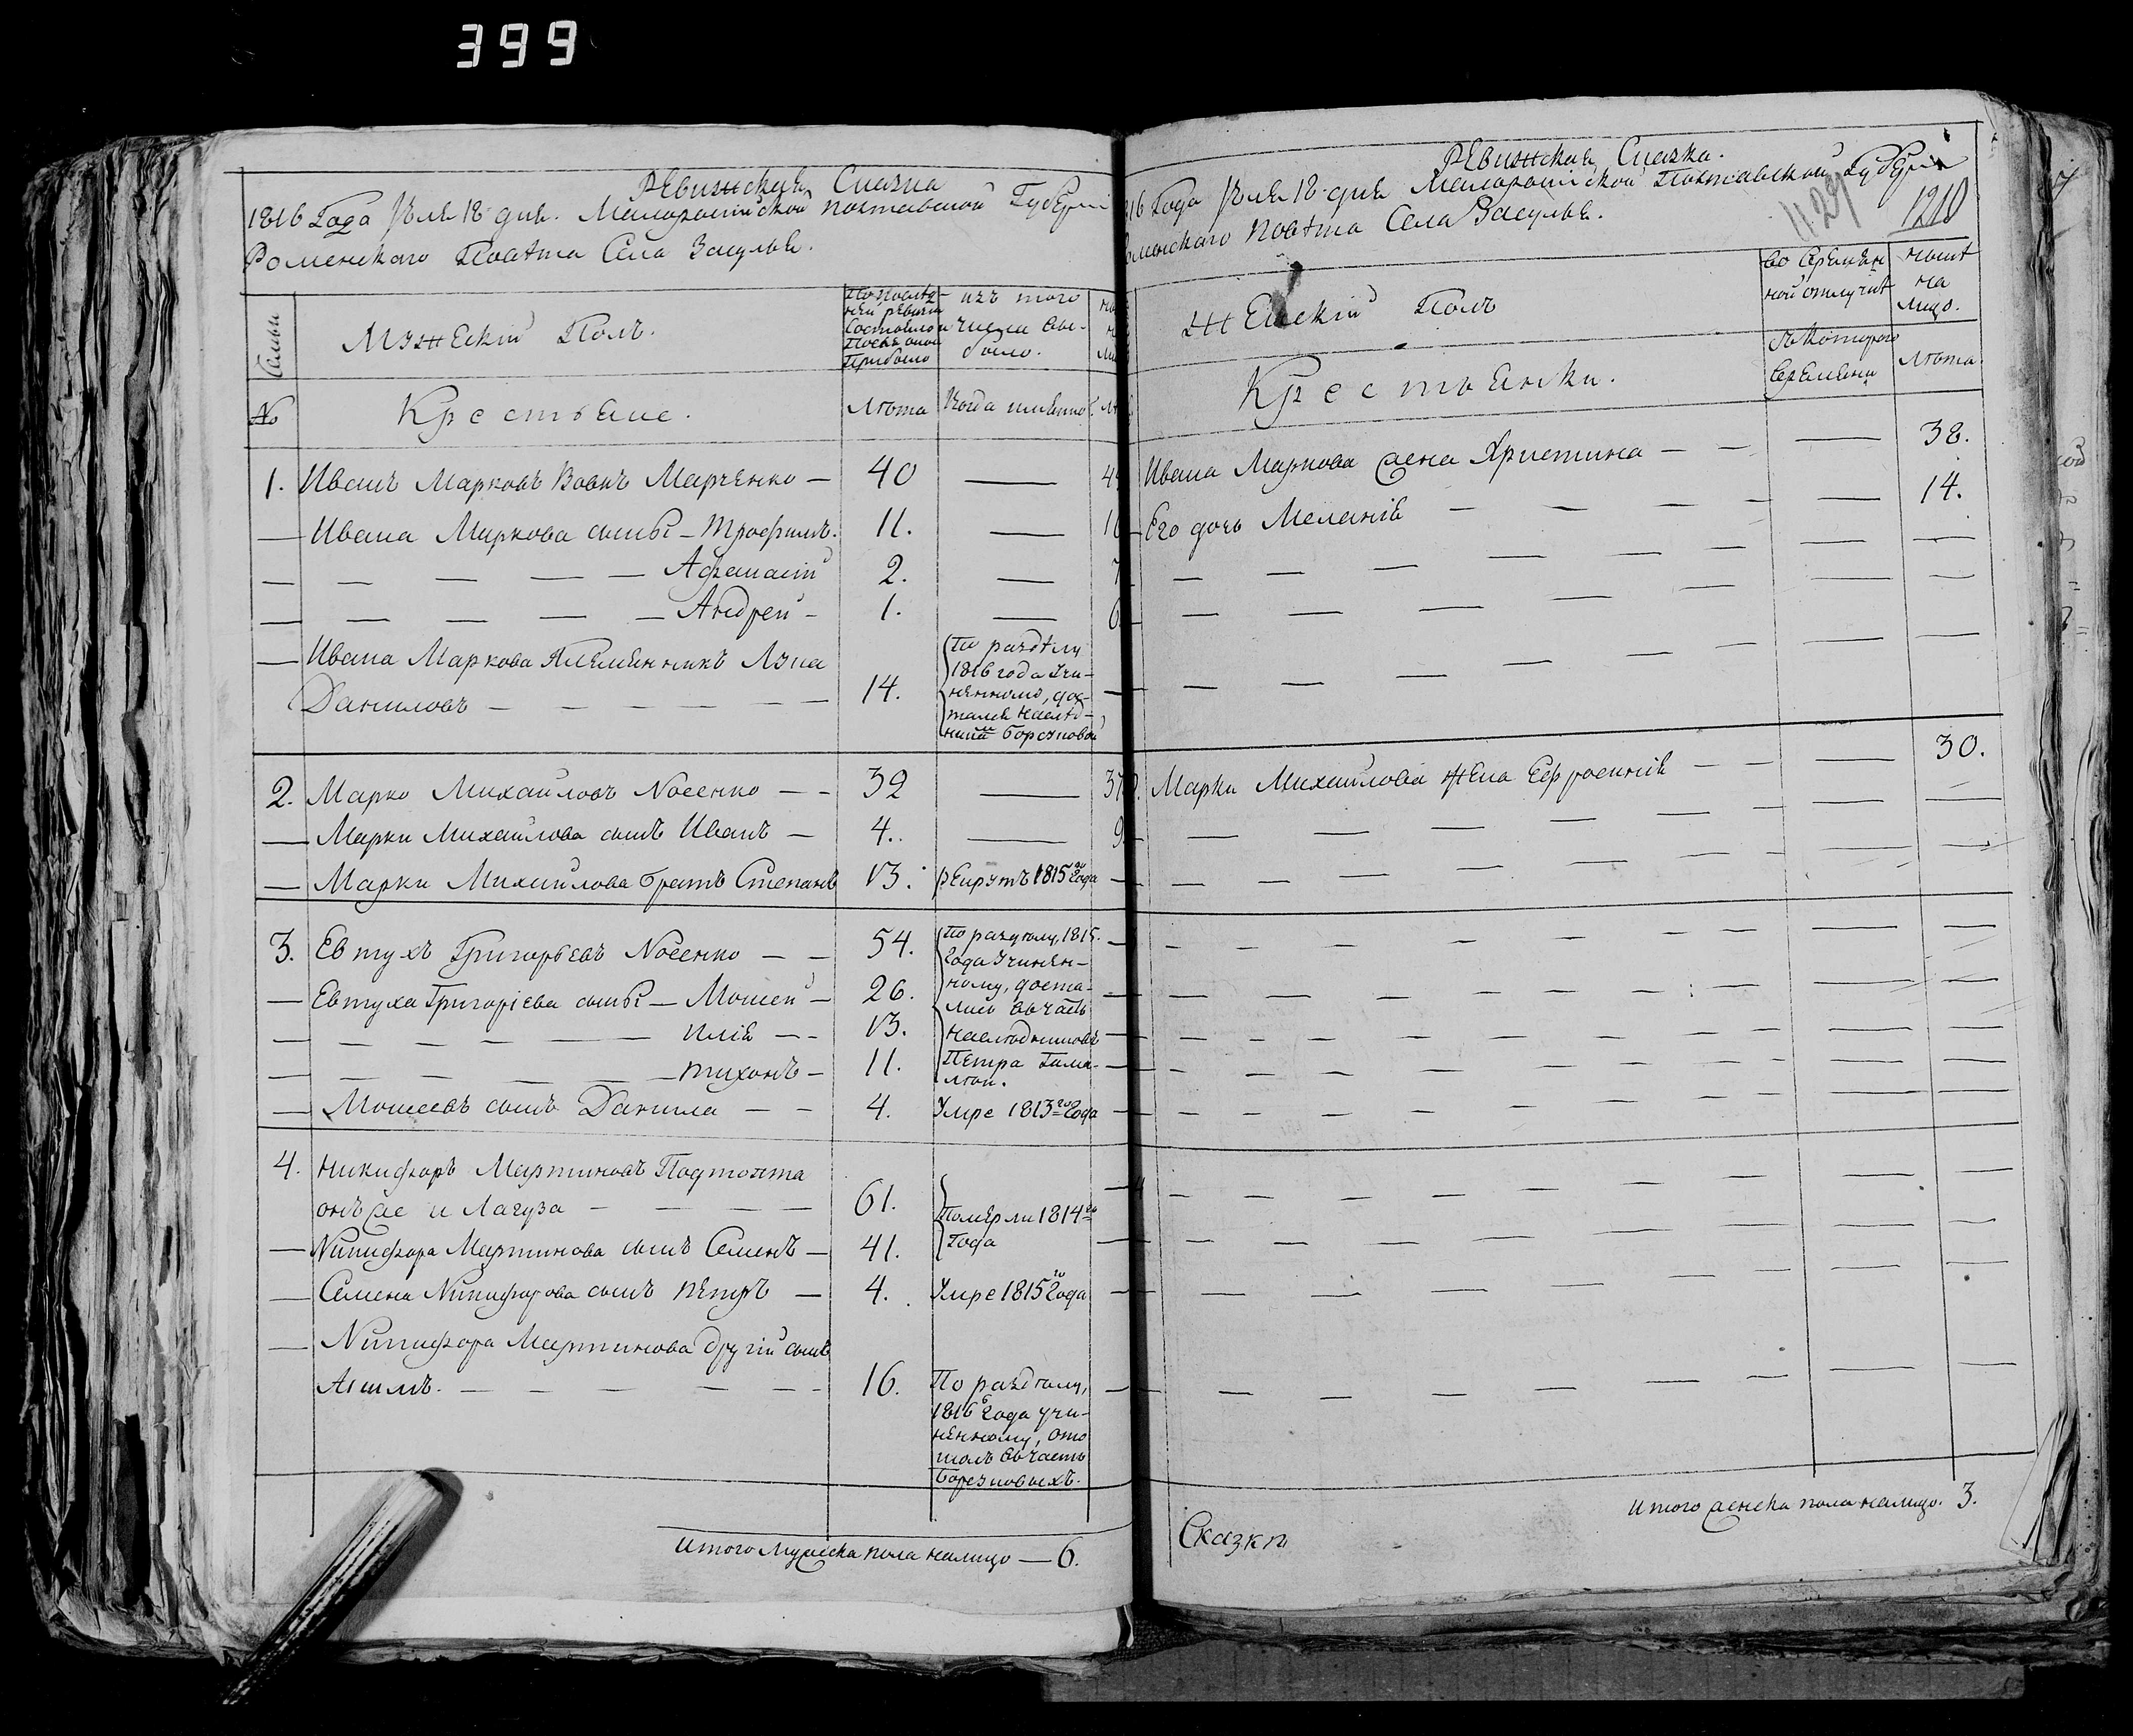 399
Ревижская Сказка
1816 Года Июля 18 дня. Малороссійской Полтавской Губерніи
Роменскаго Повѣта Села Засулья.
Семьи
Мужескій Полъ.
По послѣд-
ней ревизіи
состояло и
после оной
прибыло
изъ того
числа вы-
было.
№
Крестьяне.
Лѣта
Когда имѣнно.
1. Иванъ Марковъ Вовкъ Марченко — 40 —
— Ивана Маркова сыны — Трофимъ. 11. —
— — — — — — Афанасій 2. —
— — — — — — Андрей — 1. —
— Ивана Маркова племянникъ Лука
Даниловъ — — — — — — 14.
По раздѣлу
1816 года учи-
ненному, дос-
тался наслѣд-
ници Борсуковой
2. Марко Михайловъ Носенко — — 32 — 37
— Марки Михайлова сынъ Иванъ — 4. — 9
— Марки Михайлова братъ Степанъ 13. рекрутъ 1815го года —
3. Евтухъ Григорьевъ Носенко — — 54.
— Евтуха Григорієва сыны — Мосей — 26.
— — — — — Илія — — 13.
— — — — — Тихонъ — 11.
По разделу, 1815.
Года учинен-
ному, доста-
лись въ часть
наслѣдниковъ
Петра Гама-
лѣи.
— Мосеевъ сынъ Данила — — 4. Умре 1813го года —
4. Никифоръ Мартиновъ Подтопта
онъ же и Лагуза — — — — 61.
— Никифора Мартинова сынъ Семенъ — 41.
Померли 1814го
Года
— Семена Никифорова сынъ Петръ — 4. Умре 1815го года —
— Никифора Мартинова другій сынъ
Акимъ. — — — — — — 16.
По раздѣлу,
1816 года учи-
ненному, ото
шолъ въ часть
Борсуковыхъ.
Итого мужеска пола налицо — 6.
Ревижская Сказка.
16 Года Июля 18 дня Малороссійской Полтавской Губерніи
оменскаго Повѣта Села Засулья.
1129
1210
Женскій Полъ
во времен
ной отлучкѣ
нынѣ
на
лицо.
Крестьянки.
съ котораго
времени
Лѣта.
Ивана Маркова жена Христина — — — 38.
Его дочь Меланія — — — — — 14.
Марки Михайлова жена Ефросинія — — — 30.
Итого женска пола налицо. 3.
Сказкѣ